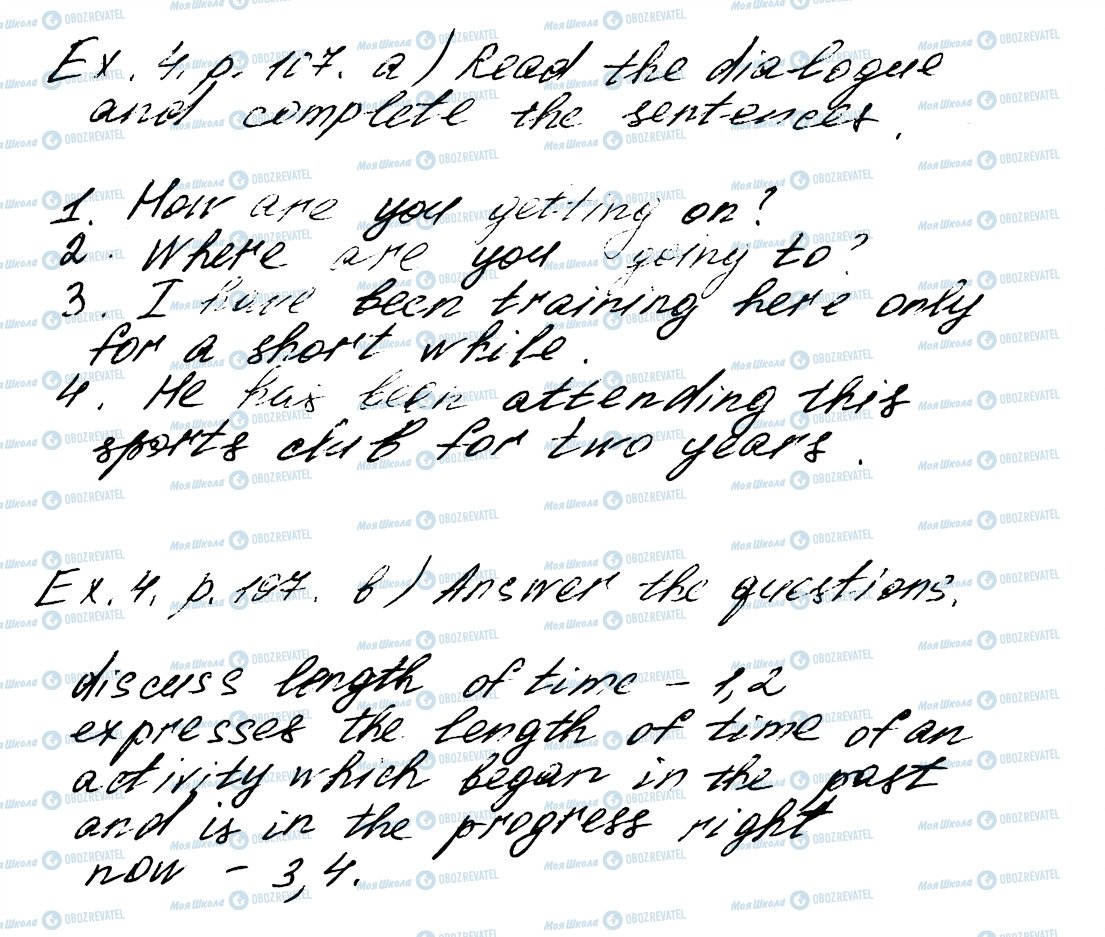 Ex. 4, p. 107. a) Read the dialogue
and complete the sentences.
1. How are you getting on?
2. Where are you going to?
3. I have been training here only
for a short while.
4. He has been attending this
sports club for two years.
Ex. 4, p. 107. b) Answer the questions.
discuss length of time – 1,2
expresses the length of time of an
activity which began in the past
and is in the progress right
now – 3,4.
МояШкола OBOZREVATEL